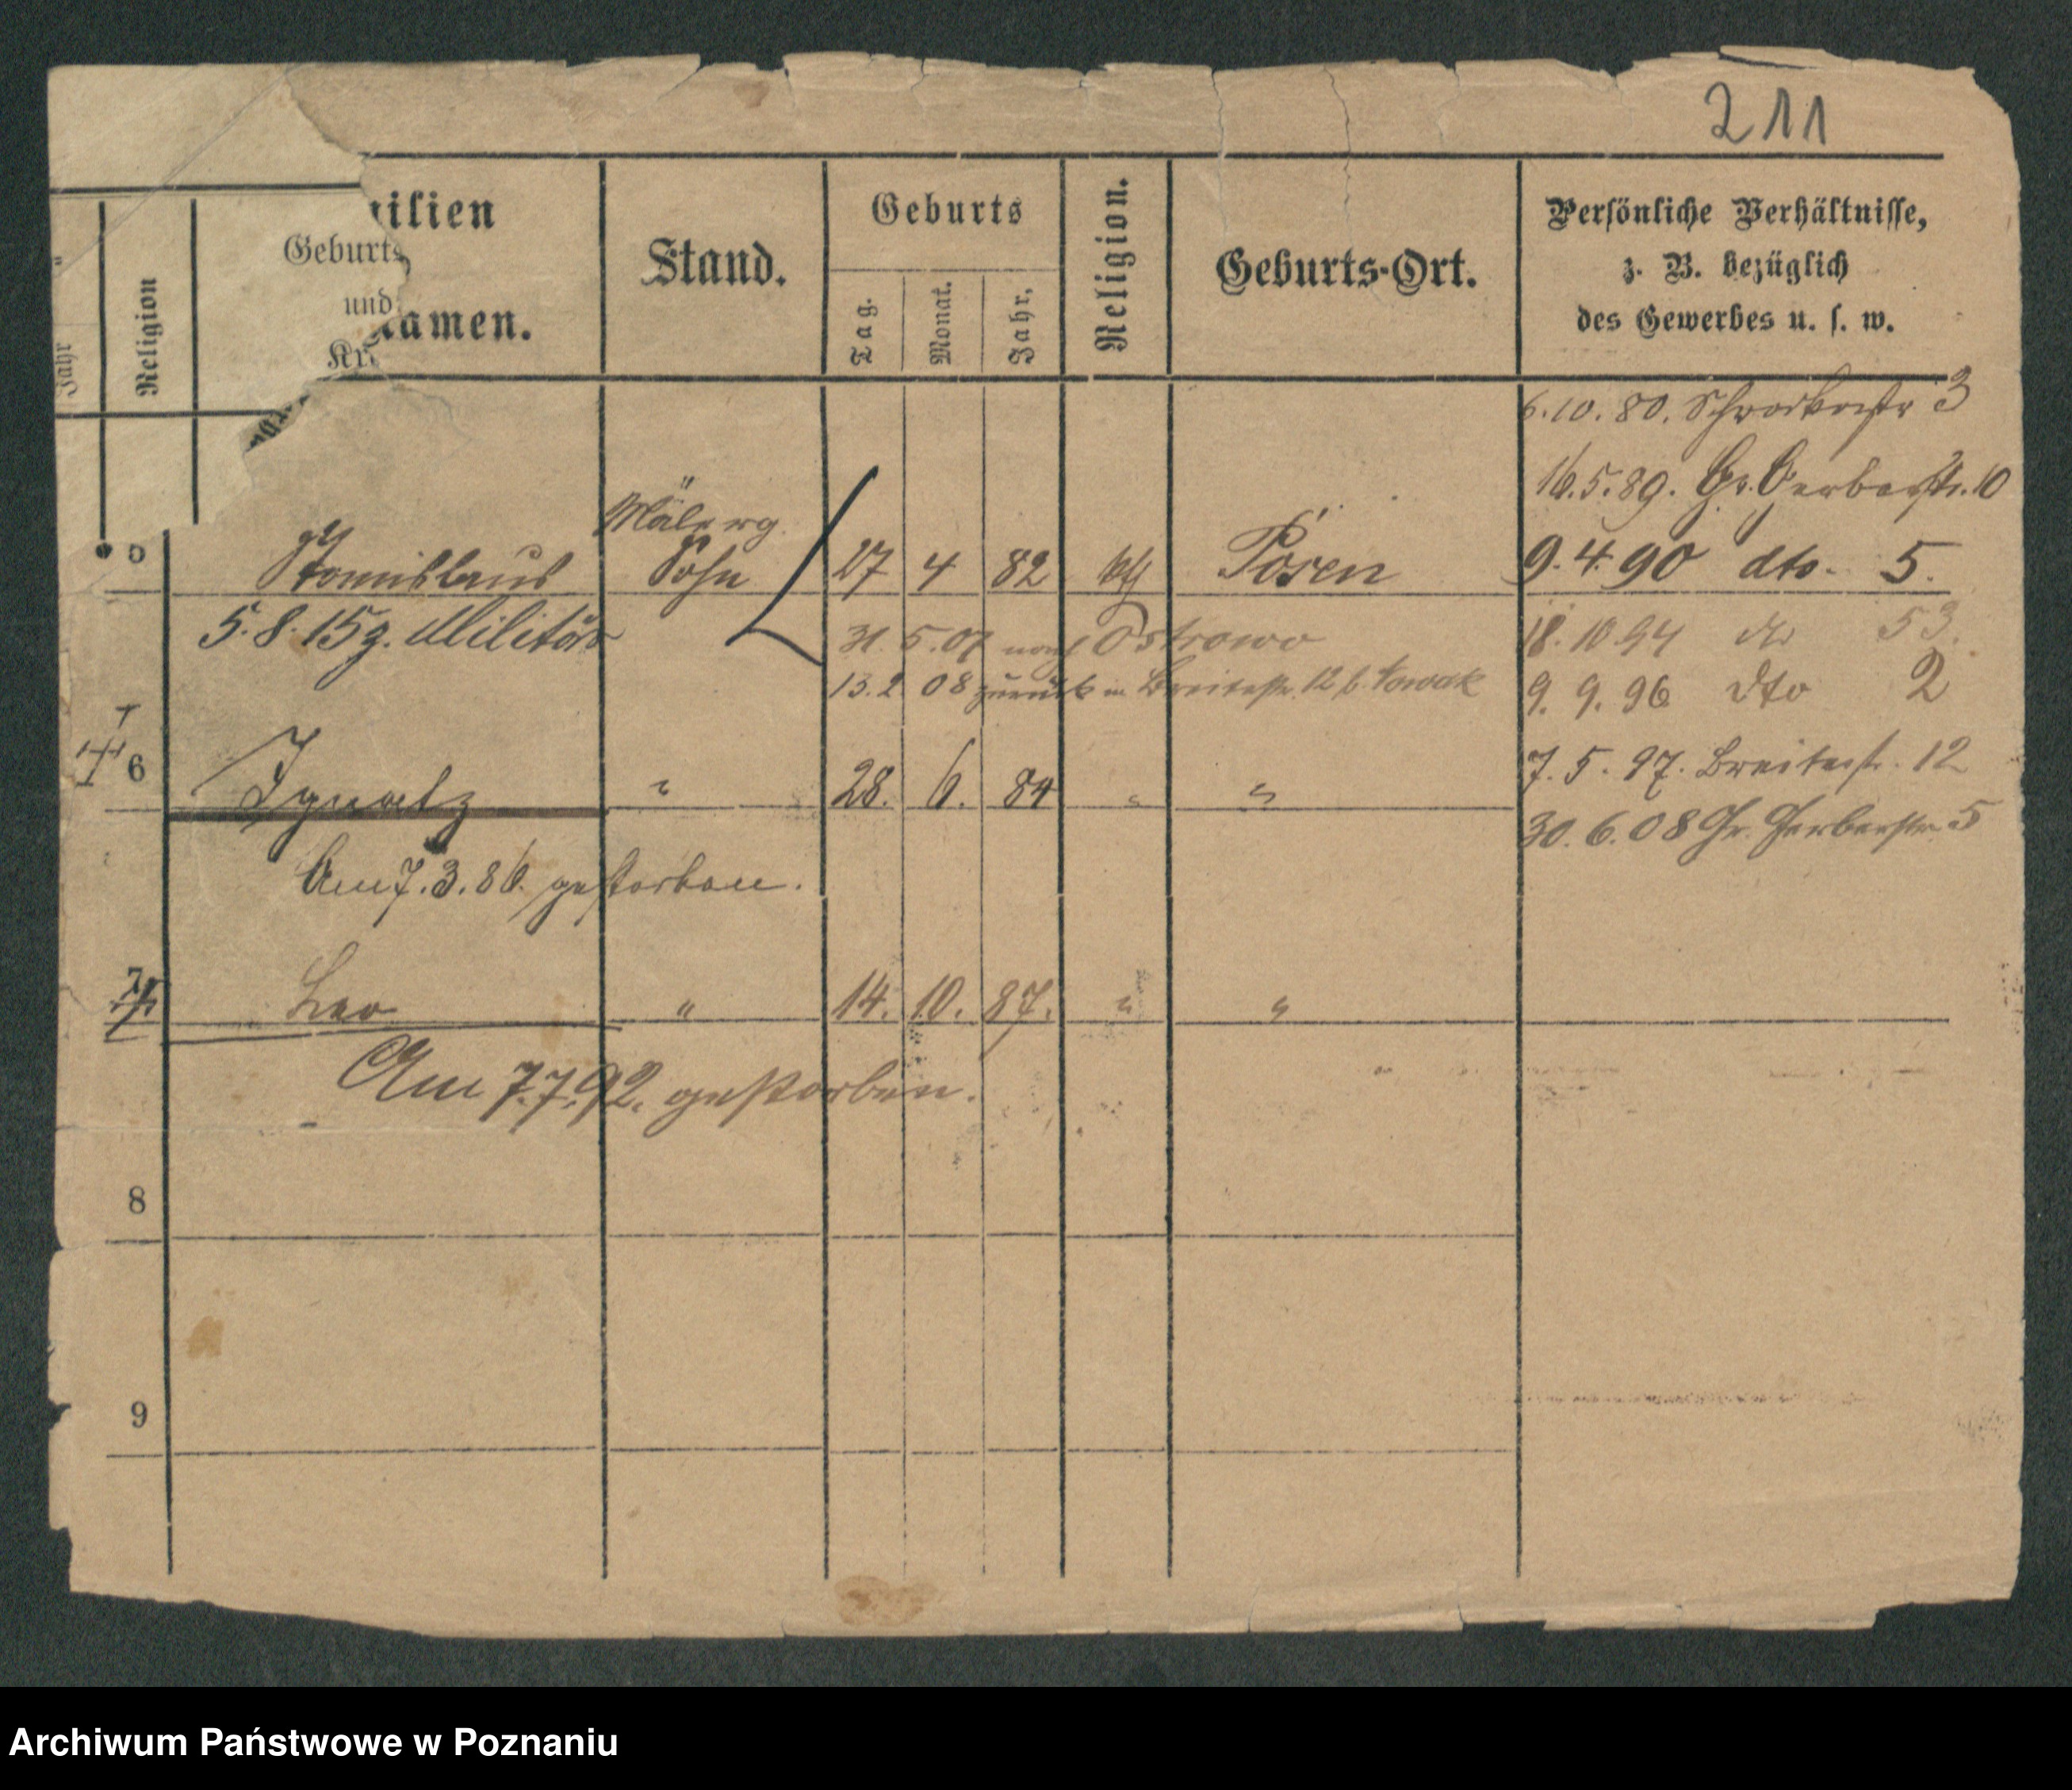 211
ilien
Geburts
und
amen.
Kr
Stand.
Geburts
Tag.
Monat.
Jahr.
Religion.
Geburts-Ort.
Persönliche Verhältnisse,
z. B. bezüglich
des Gewerbes u. s. w.
Jahr
Religion
6.10.80. 3
16.5.89. Gr. Gerberstr. 10
Stanislaus Sohn 27 4 82 kth Posen
9.4.90 dto. 5.
5.8.15 z. Militär
31.5.07 nach Ostrowo
18.10.94 dto 53.
13.2 08 zurück in Breitestr. 12 b. Nowak
9.9.96 dto 2
6 Ignatz " 28. 6. 84 " "
7.5.97. Breitestr. 12
30.6.08 Gr. Gerberstr. 5
Am 7.3.86. gestorben.
7 Leo " 14. 10. 87. " "
Am 7.7.92. gestorben.
8
9
Archiwum Państwowe w Poznaniu